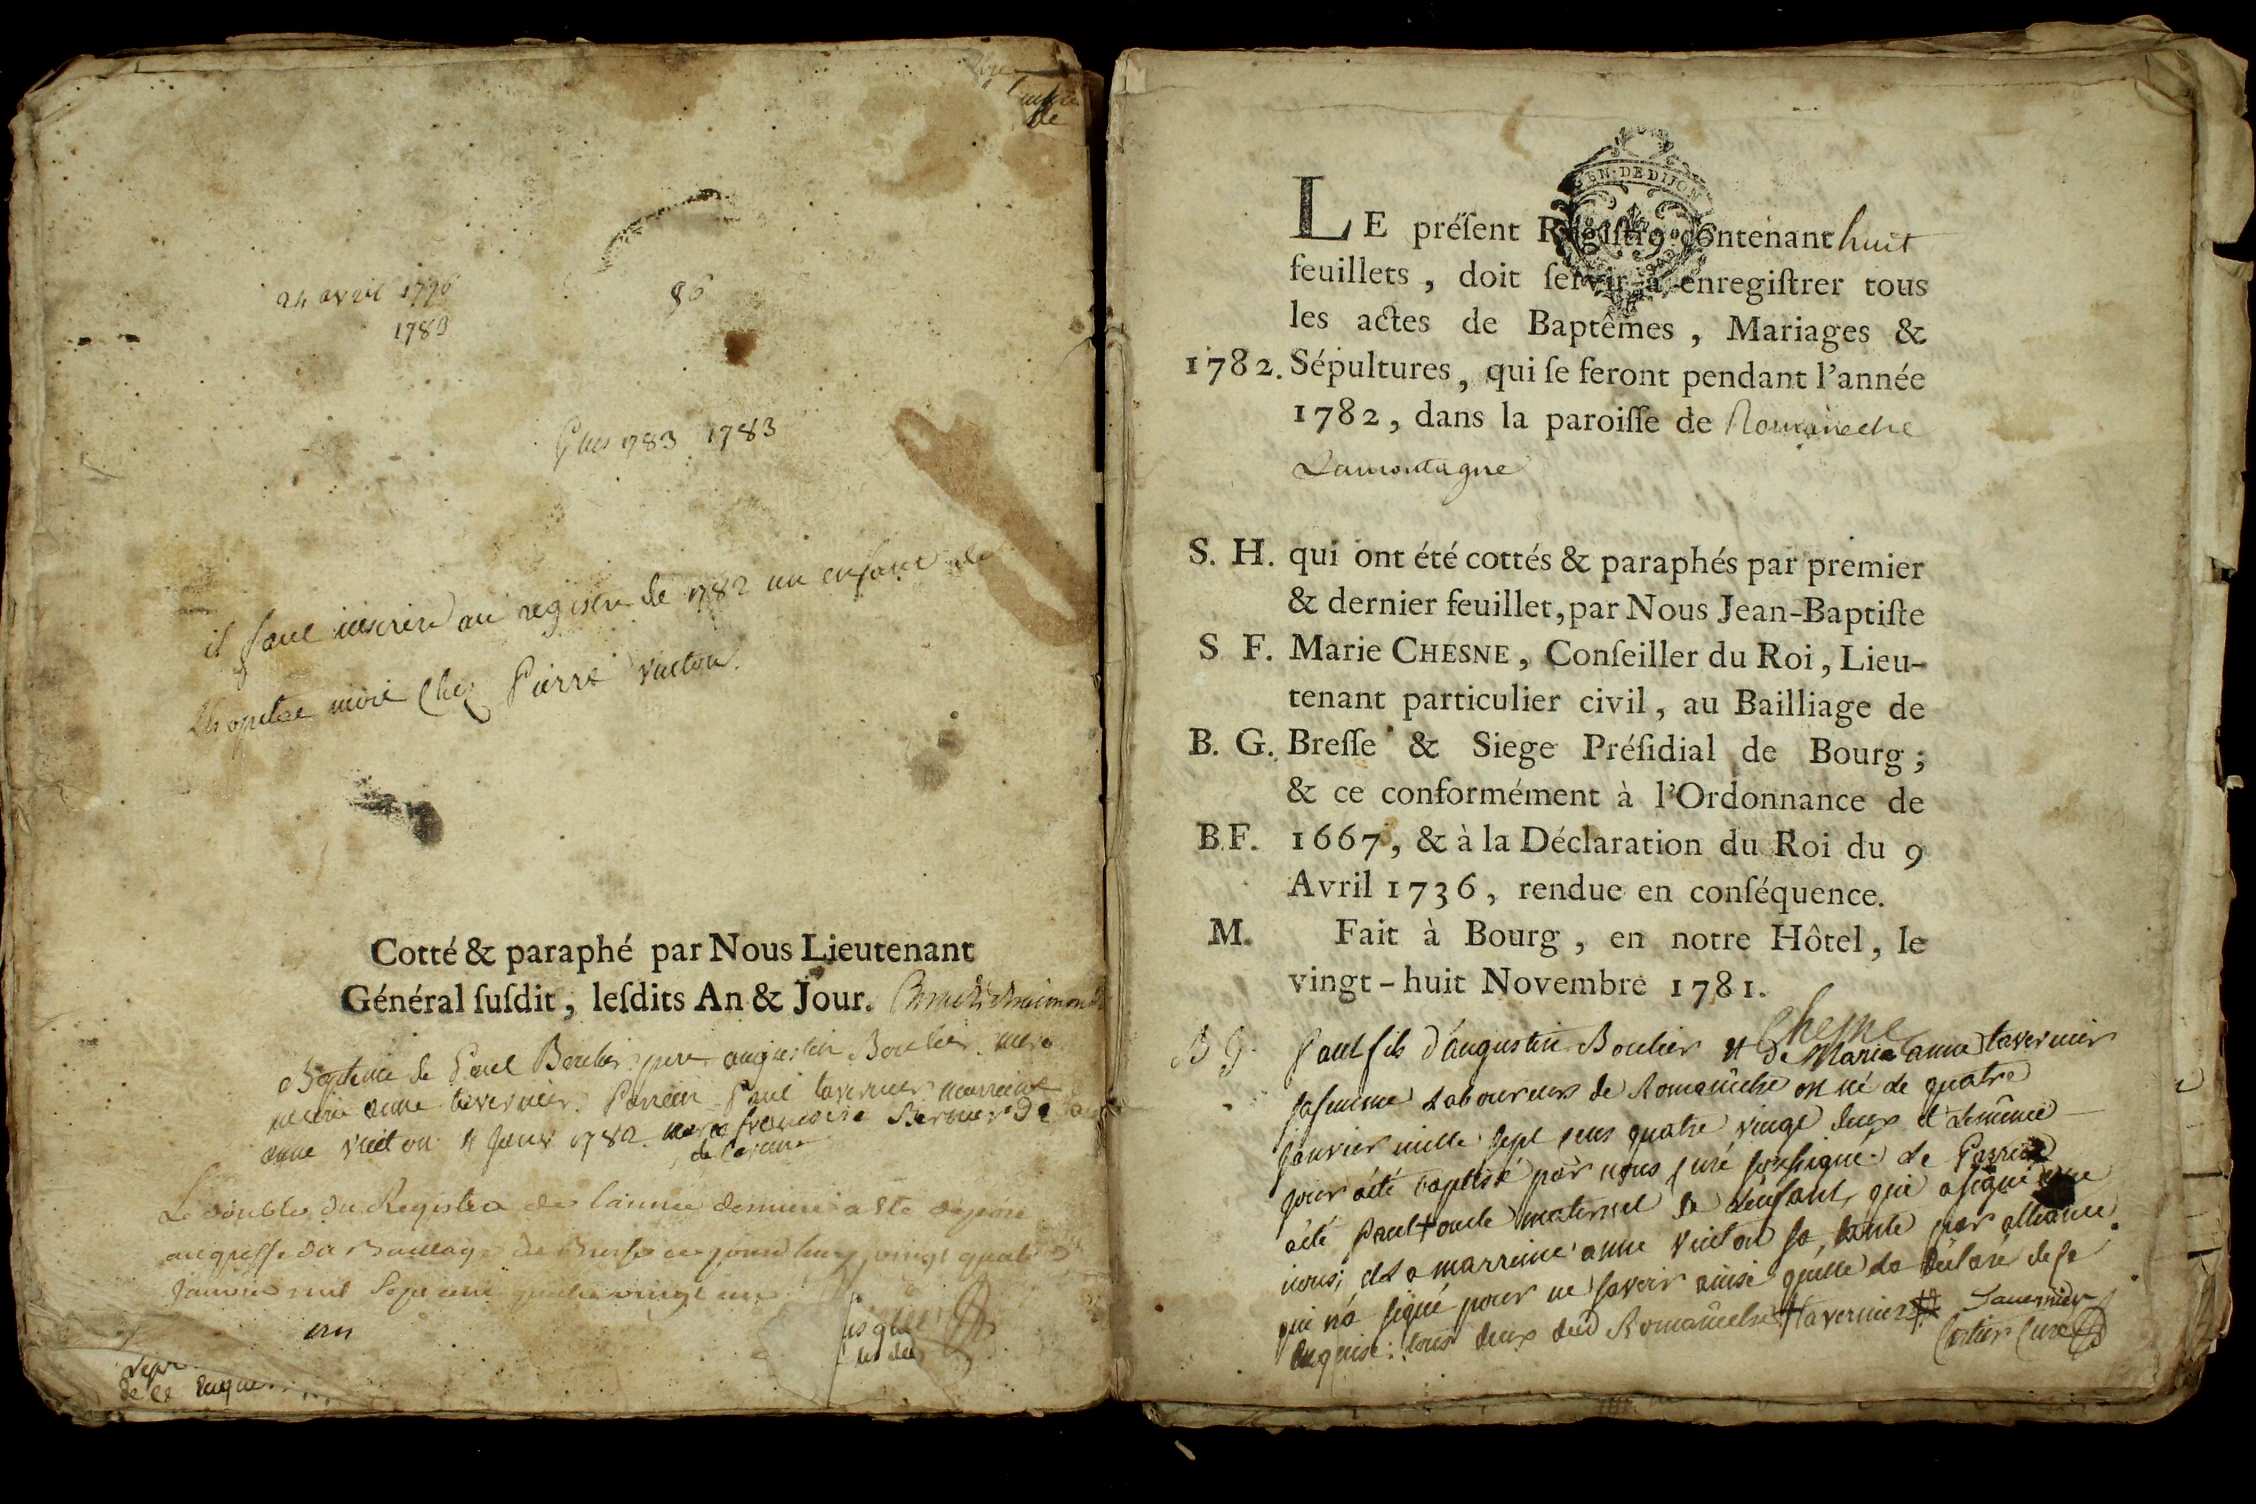 24 avril 1796
1783
86
1783 1783
il faut inscrire au registre de 1782 un enfant de
Lhopital mort chez Pierre Vuiton.
Cotté & paraphé par Nous Lieutenant
Général ſuſdit, leſdits An & Jour.
Baptême de Paul Boulier pere augustin Boulier mere
marie anne tavernier. Parrein Paul tavernier marreine
anne Vuiton 4 Janv 1782. marie francoise Bernier
Le double du Registre de l'année derniere a été déposé
au greffe du Bailliage de Bresse ce jourd'huy vingt quatre
Janvier mil Sept cent quatre vingt un
GEN. DE DIJON
LE préſent Regiſtre contenant huit
feuillets, doit ſervir à enregiſtrer tous
les actes de Baptêmes, Mariages &
1782. Sépultures, qui ſe feront pendant l'année
1782, dans la paroiſſe de Romanêche
Lamontagne
S. H. qui ont été cottés & paraphés par premier
& dernier feuillet, par Nous Jean-Baptiſte
S F. Marie CHESNE, Conſeiller du Roi, Lieu-
tenant particulier civil, au Bailliage de
B. G. Breſſe & Siege Préſidial de Bourg;
& ce conformément à l'Ordonnance de
B. F. 1667, & à la Déclaration du Roi du 9
Avril 1736, rendue en conſéquence.
M. Fait à Bourg, en notre Hôtel, le
vingt-huit Novembre 1781.
Chesne
B G. Paul fils d'augustin Boulier et de Marie anne tavernier
sa femme Laboureurs de Romanêche est né le quatre
Janvier mille sept cens quatre vingt deux et le même
jour a été baptisé par nous curé soussigné. Le Parrein
a été Paul + oncle maternel de L'enfant, qui a signé avec
nous; et La marreine anne Vuiton sa tante par alliance
qui n'a signé pour ne savoir ainsi qu'elle l'a déclaré de ce
enquise. tous deux dud Romanêche + tavernier Tavernier
Cortier Curé